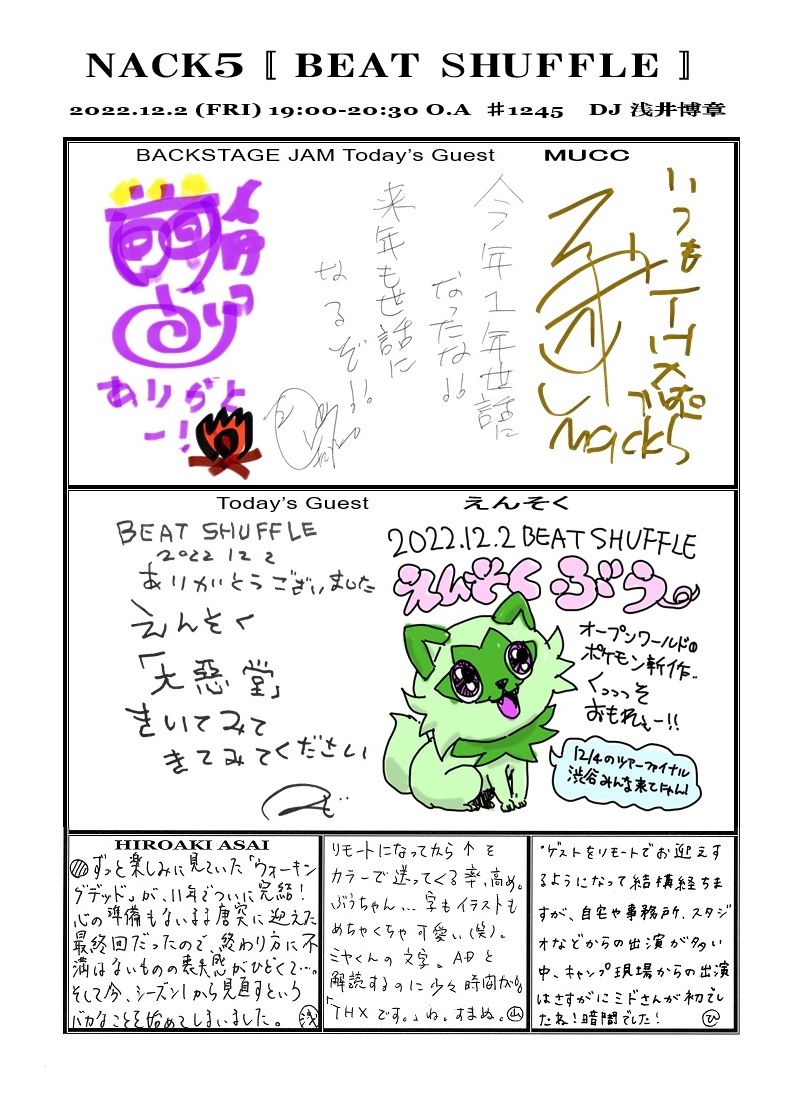 NACK5 〚 BEAT SHUFFLE 〛
2022.12.2 (FRI) 19:00-20:30 O.A ♯1245 DJ 浅井博章
BACKSTAGE JAM Today's Guest MUCC
いつも
nack5
今年1年世話に
なったな!!
来年も世話に
なるぞ!!
ありがと
ー!
Today's Guest えんそく
BEAT SHUFFLE
2022 12 2
ありがとうございました
えんそく
「大惡堂」
きいてみて
きてみてください
2022.12.2 BEAT SHUFFLE
えんそく ぶう
オープンワールドの
ポケモン新作..
くっっっそ
おもれぇー!!
12/4のツアーファイナル
渋谷みんな来てにゃん!
HIROAKI ASAI
ずっと楽しみに見ていた「ウォーキン
グデッド」が、11年でついに完結!
心の準備もないまま唐突に迎えた
最終回だったので、終わり方に不
満はないものの喪失感がひどくて…。
そして今、シーズン1から見直すという
バカなことを始めてしまいました。 浅
リモートになってから ↑ を
カラーで送ってくる率、高め。
ぶうちゃん… 字もイラストも
めちゃくちゃ可愛い(笑)。
ミヤくんの文字。
解読するのに少々時間が
「THXです。」ね。すまぬ。 山
・ゲストをリモートでお迎えす
るようになって結構経ちま
すが、自宅や事務所、スタジ
オなどからの出演が多い
中、キャンプ現場からの出演
はさすがにミドさんが初でし
たね!暗闇でした! ひ